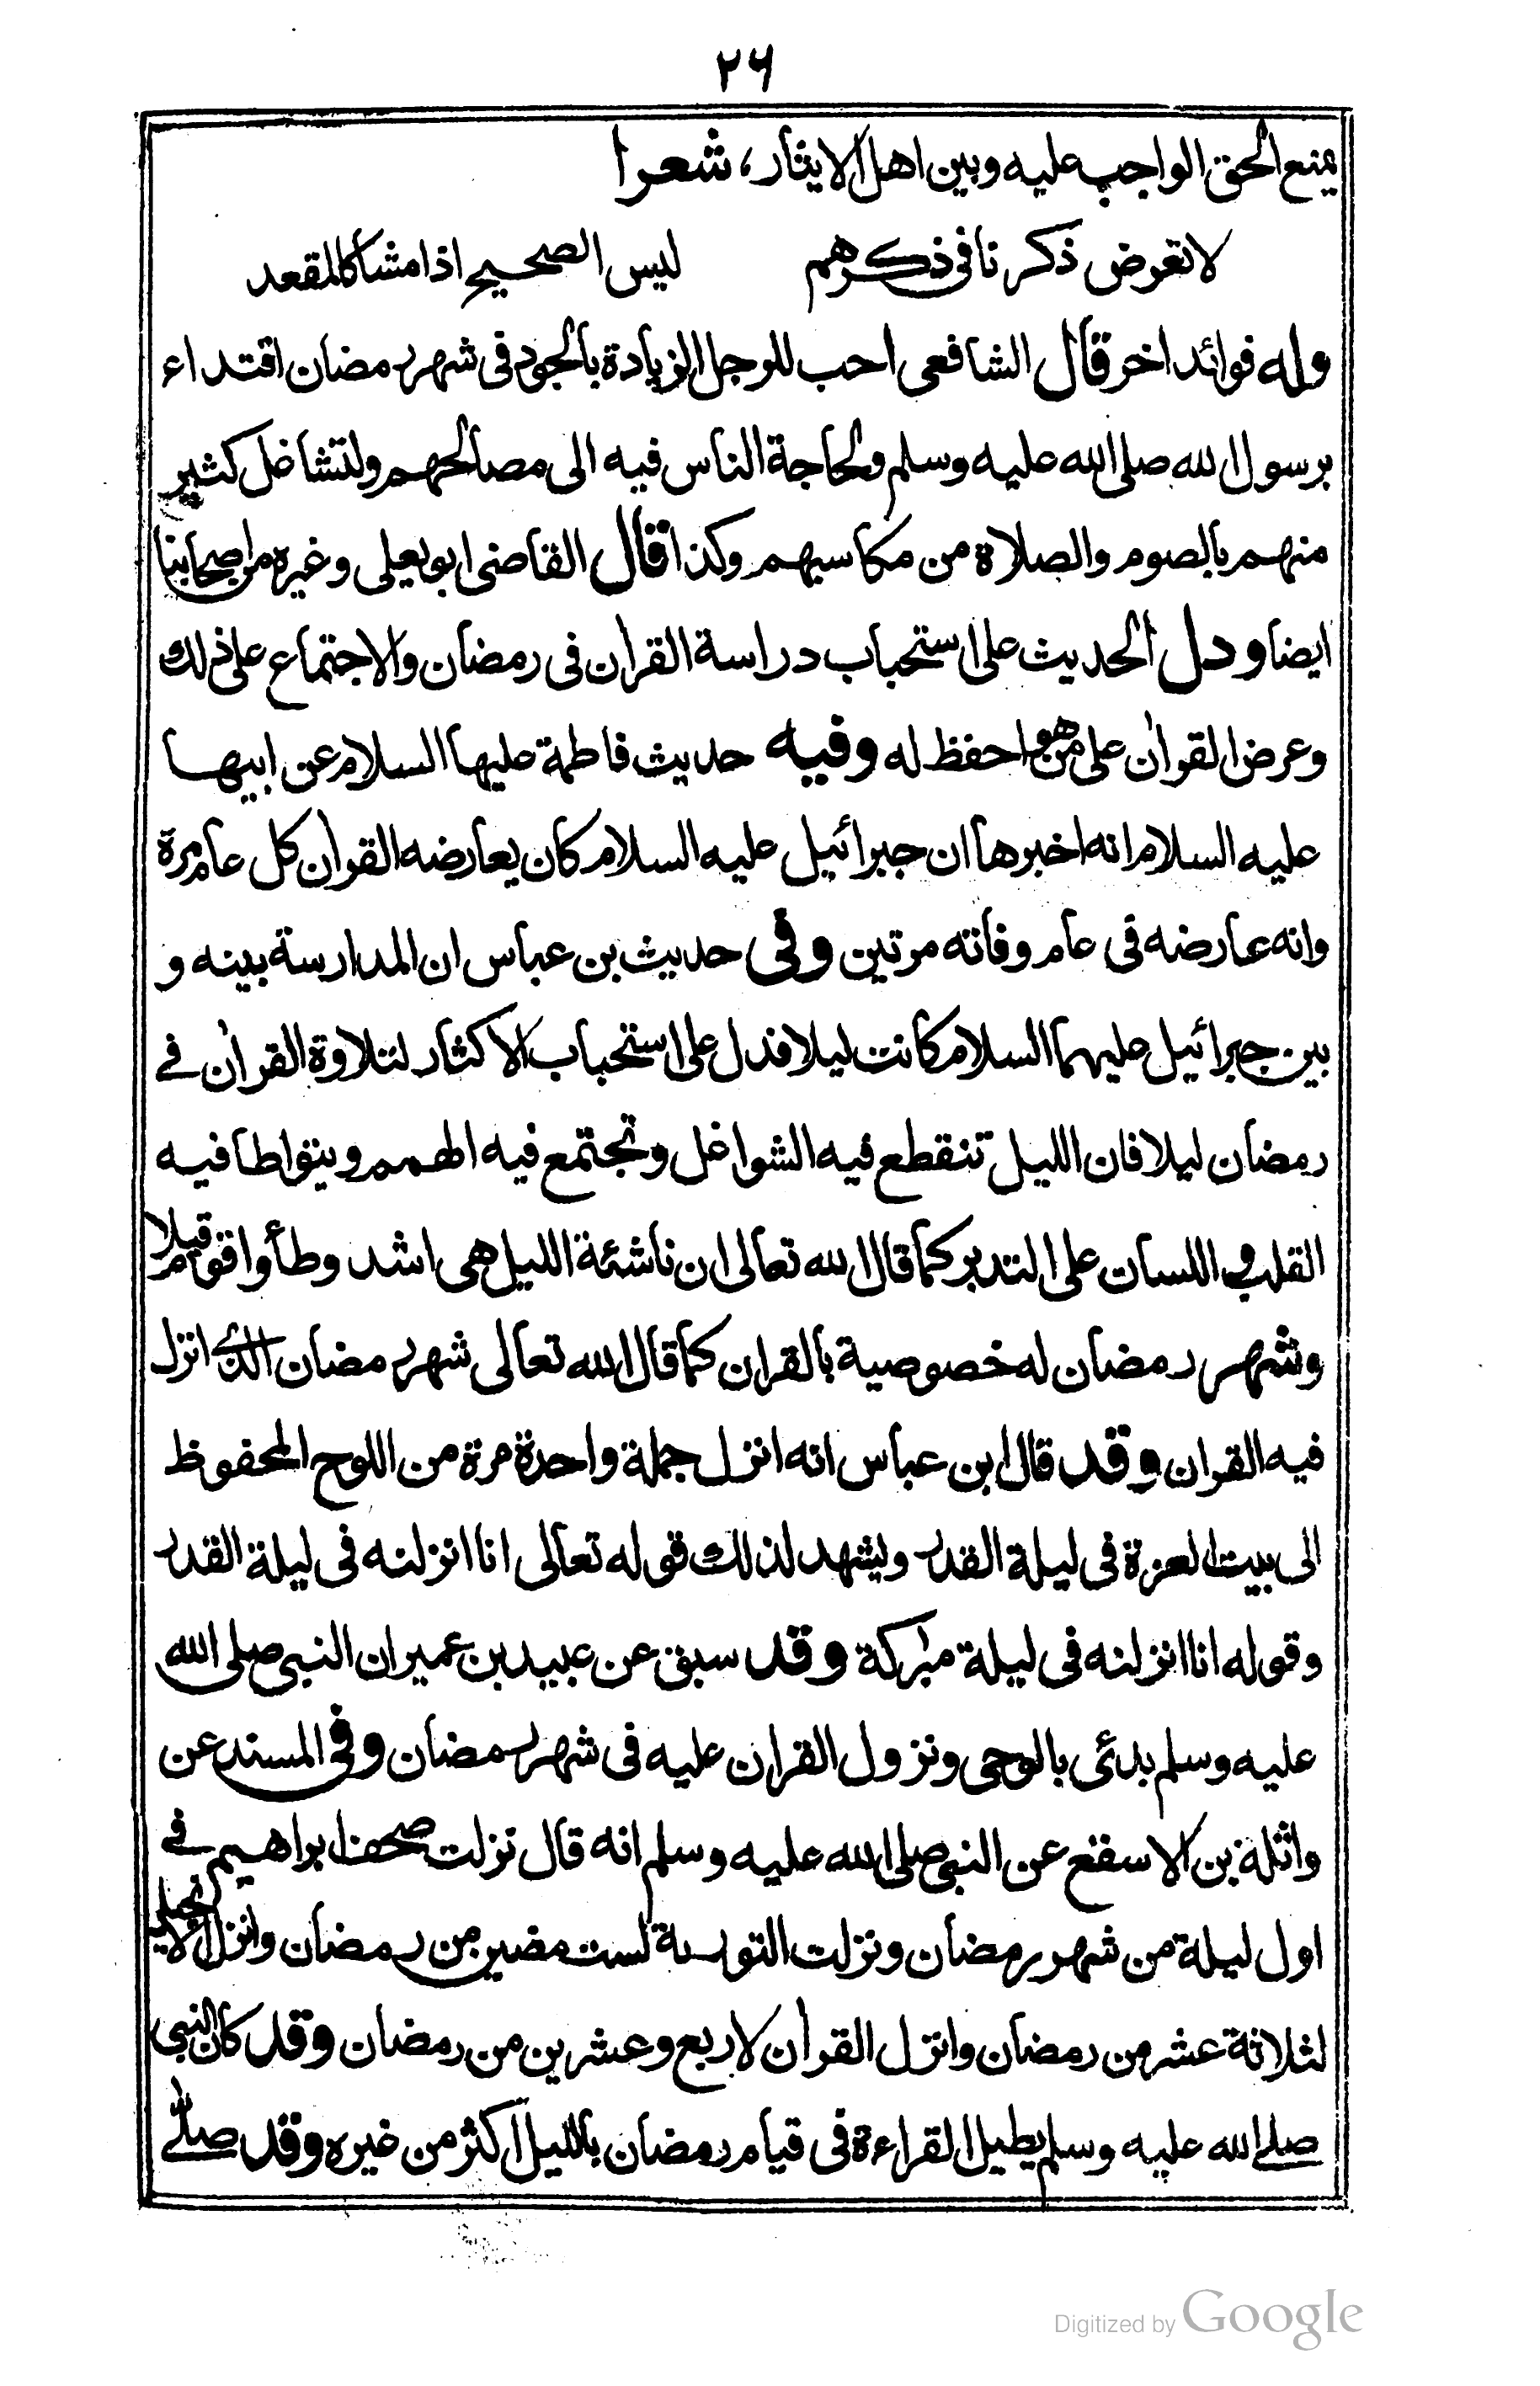 ۲۶
يمنع الحق الواجب عليه وبين اهل الايثار، شعرا
لا تعرض ذكرنا فى ذكرهم ليس الصحيح اذا مشا كالمقعد
وله فوائد اخر قال الشافعى احب للرجل الزيادة بالجود فى شهر رمضان اقتداء
برسول الله صلى الله عليه وسلم ولحاجة الناس فيه الى مصالحهم ولتشاغل كثير
منهم بالصوم والصلاة من مكاسبهم وكذا قال القاضى ابو يعلى وغيره من اصحابنا
ايضا ودل الحديث على استحباب دراسة القران فى رمضان والاجتماع على ذلك
وعرض القران على من هو احفظ له وفيه حديث فاطمة عليها السلام عن ابيها
عليه السلام انه اخبرها ان جبرائيل عليه السلام كان يعارضه القران كل عام مرة
وانه عارضه فى عام وفاته مرتين وفى حديث بن عباس ان المدارسة بينه و
بين جبرائيل عليهما السلام كانت ليلا فدل على استحباب الاكثار لتلاوة القران فے
رمضان ليلا فان الليل تنقطع فيه الشواغل وتجتمع فيه الهمم ويتواطا فيه
القلب و اللسان على التدبر كما قال الله تعالى ان ناشئة الليل هى اشد وطأ واقوم قيلا
وشهر رمضان له خصوصية بالقران كما قال الله تعالى شهر رمضان الذے انزل
فيه القران وقد قال ابن عباس انه انزل جملة واحدة مرة من اللوح المحفوظ
الى بيت العزة فى ليلة القدر ويشهد لذلك قوله تعالى انا انزلنه فى ليلة القدر
وقوله انا انزلنه فى ليلة مبٰركة وقد سبق عن عبيد بن عمير ان النبى صلى الله
عليه وسلم بدئى بالوحى ونزول القران عليه فى شهر رمضان وفى المسند عن
واثلة بن الاسقع عن النبى صلى الله عليه وسلم انه قال نزلت صحف ابراهيم فے
اول ليلة من شهر رمضان ونزلت التورىة لست مضين من رمضان وانزل الانجيل
لثلاثة عشر من رمضان وانزل القرأن لاربع وعشرين من رمضان وقد كان النبى
صلے الله عليه وسلم يطيل القراءة فى قيام رمضان بالليل اكثر من غيره وقد صلّے
Digitized by Google